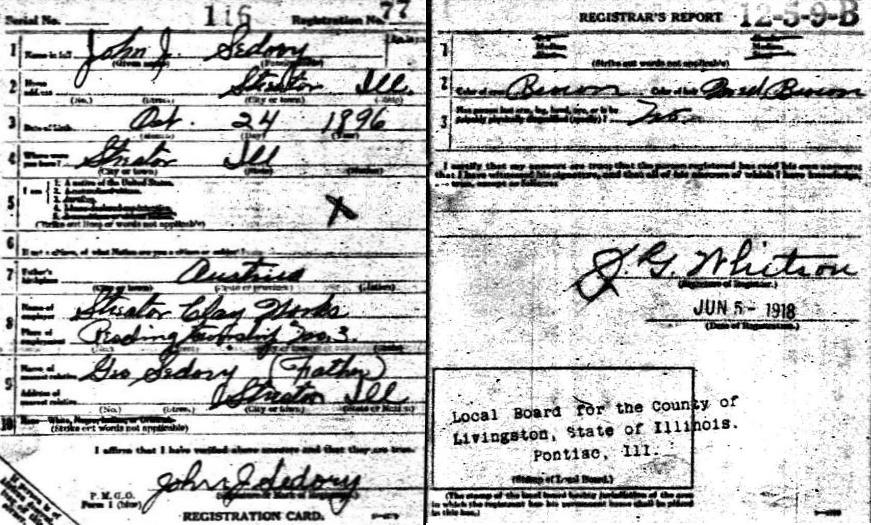 Serial No. 116 Registration No. 77
1 Name in full John J. Sedory
(Given name) (Family name)
2 Home address Streator Ill.
(No.) (Street) (City or town) (State)
3 Date of birth Oct. 24 1896
(Month) (Day) (Year)
4 Where were you born? Streator Ill
(City or town) (State) (Nation)
5 I am 1. A native of the United States.
(Strike out lines or words not applicable) X
6 If not a citizen, of what Nation are you a citizen or subject?
7 Father's birthplace Austria
(City or town) (State or province) (Nation)
8 Name of employer Streator Clay Works
Place of employment Reading township No. 3.
9 Name of nearest relative Geo Sedory (Father)
Address of nearest relative Streator Ill
(No.) (Street) (City or town) (State or Nation)
10 Race—White,
(Strike out words not applicable)
I affirm that I have verified above answers and that they are true.
John J Sedory
P. M. G. O.
Form 1 (blue)
REGISTRATION CARD.
REGISTRAR'S REPORT 12-5-9-B
1 Medium Medium
(Strike out words not applicable)
2 Color of eyes Brown Color of hair Brown
3 Has person lost arm, leg, hand, eye, or is he
palpably physically disqualified (specify)? No
I certify that my answers are true; that the person registered has read his own answers;
that I have witnessed his signature, and that all of his answers of which I have knowledge,
are true, except as follows:
J. G. Whitson
(Signature of Registrar.)
JUN 5 - 1918
(Date of Registration.)
Local Board for the County of
Livingston, State of Illinois.
Pontiac, Ill.
(Stamp of Local Board.)
(The stamp of the local board having jurisdiction of the area
in which the registrant has his permanent home shall be placed
in this box.)